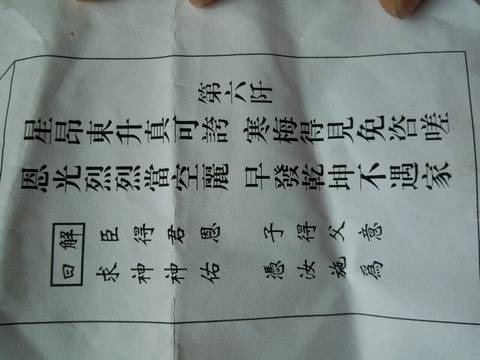 第六阡
星昂東升真可誇 寒梅得見免咨嗟
恩光烈烈當空麗 早發乾坤不遇家
解曰
臣得君恩 子得父意
求神神佑 憑汝施為